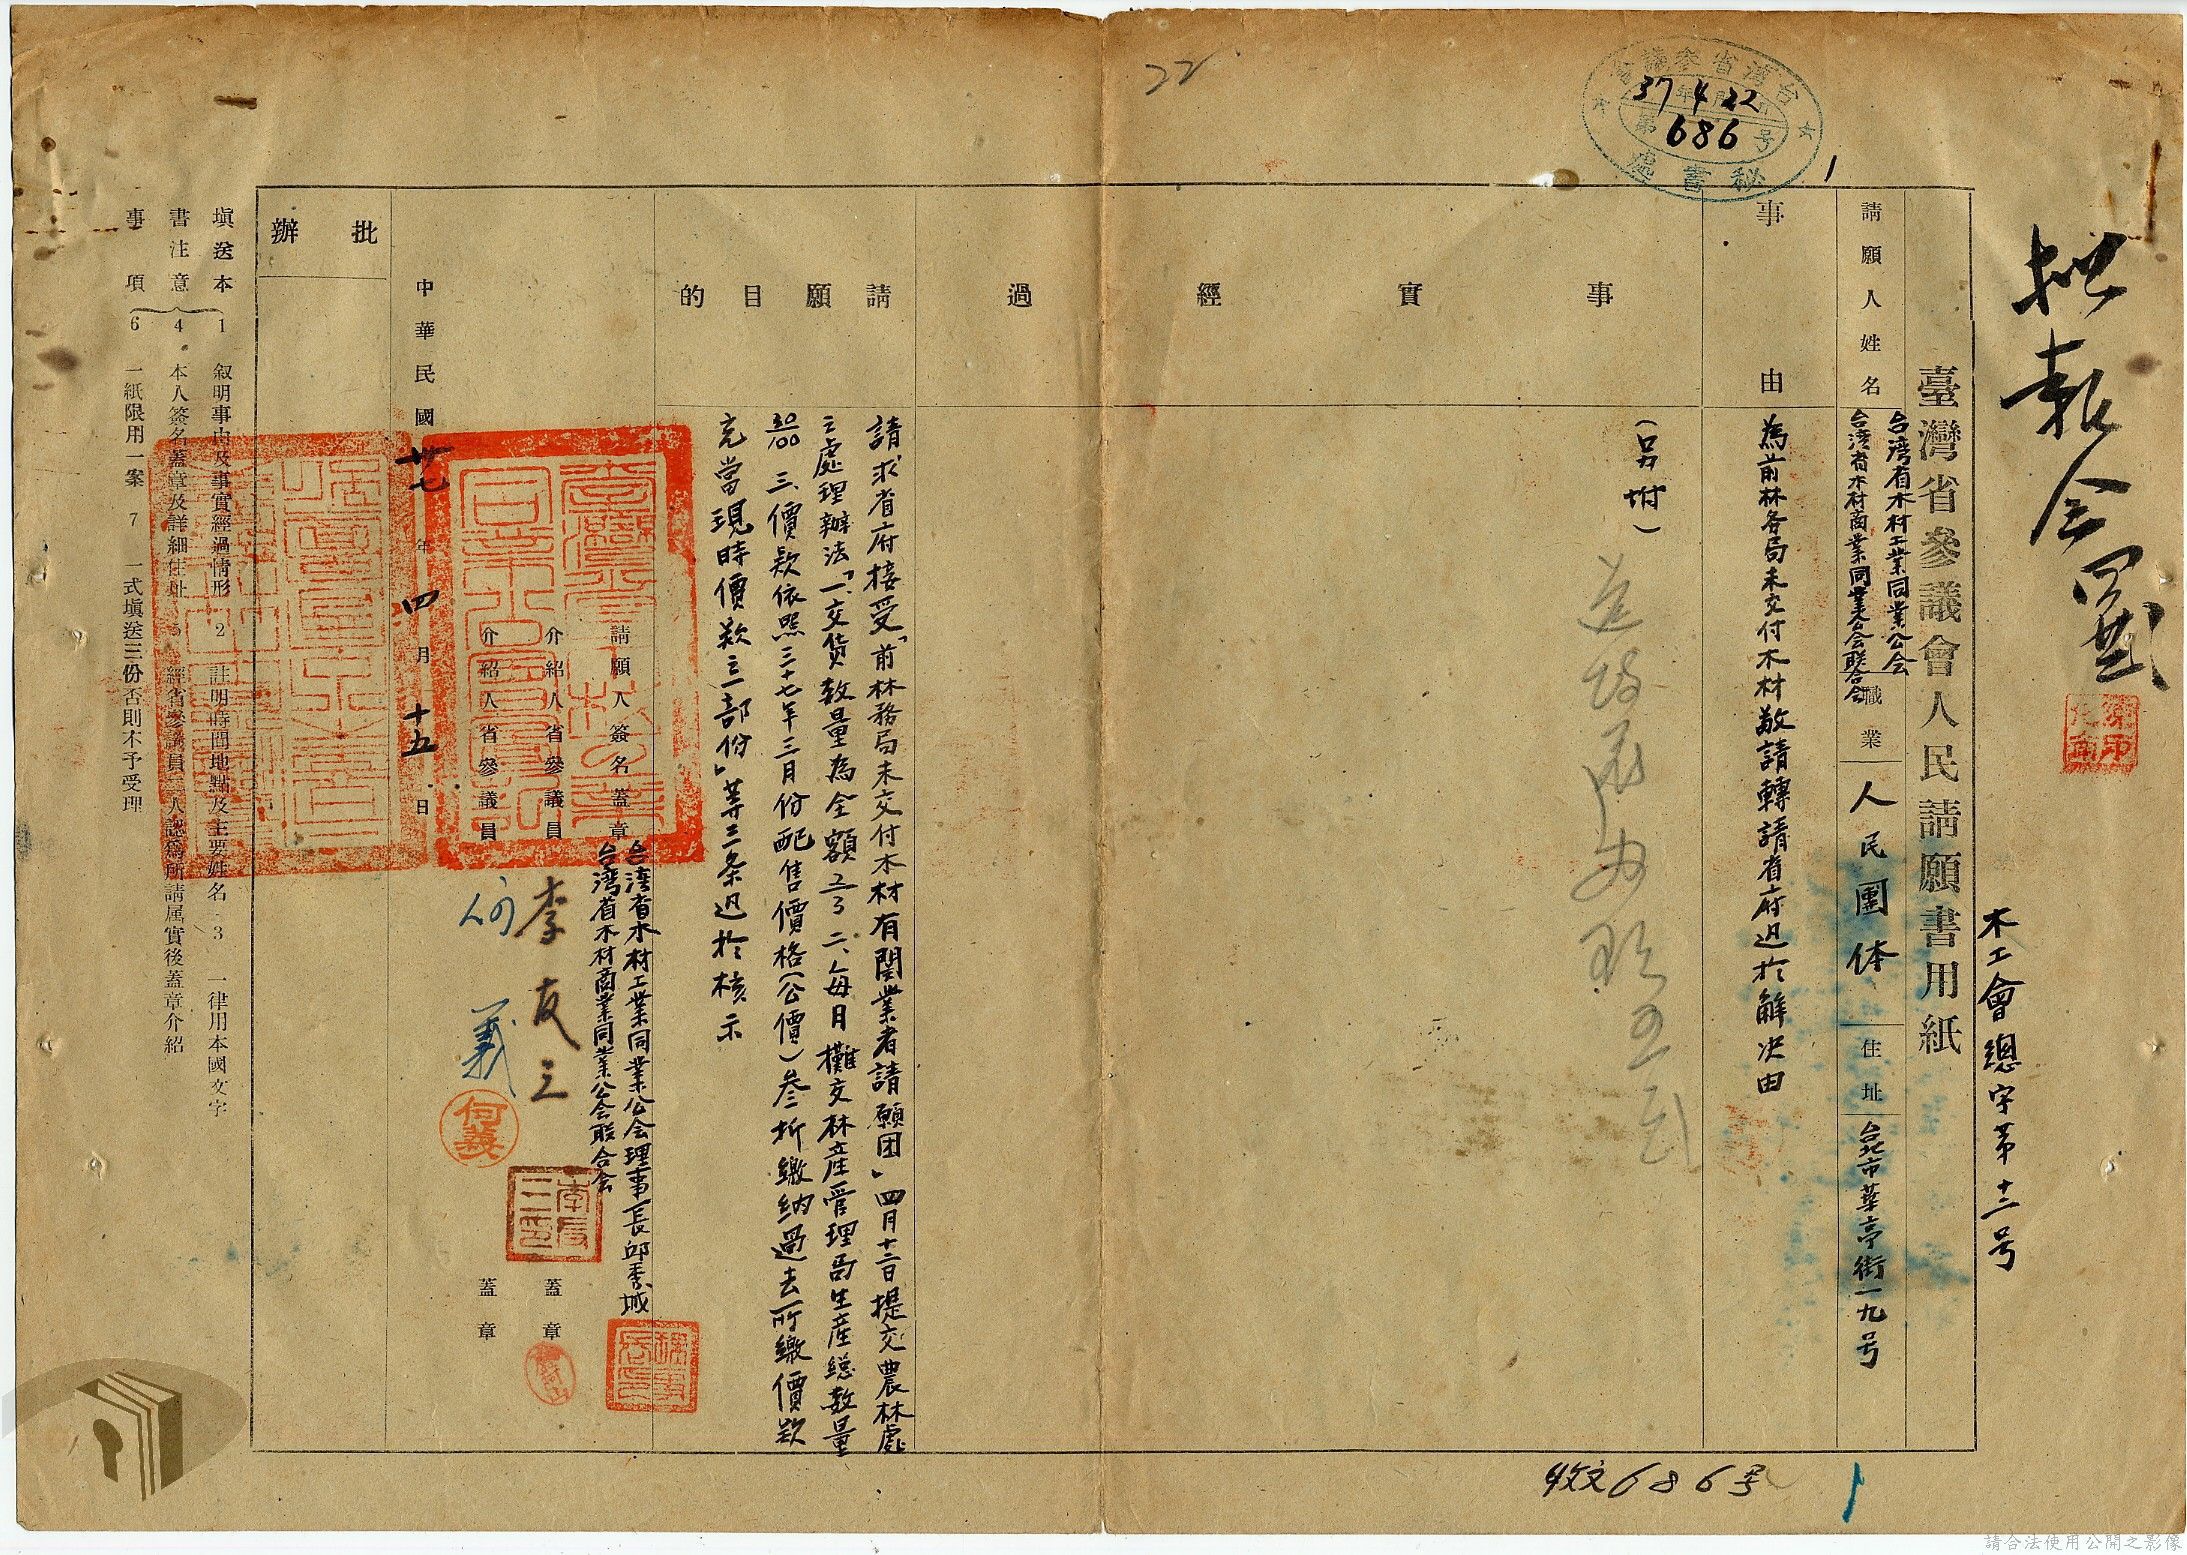 22
台灣省參議會
37年4月22日
第686号
秘書處
1
提報会單
木工會總字第十二号
臺灣省參議會人民請願書用紙
請願人姓名
台湾省木材工業同業公会
台湾省木材商業同業公会联合会
職業
人民團体
住址
台北市華亭街一九号
事由
為前林务局未交付木材敬請轉請省府迅於解決由
事實經過
(另附)
請願目的
請求省府接受「前林務局未交付木材有関業者請願团」四月十二日提交農林處
之處理辦法「一、交货数量為全額2/3 二、每月攤交林産管理局生産總数量
30/100 三、價欵依照三十七年三月份配售價格(公價)叁折繳纳過去所繳價欵
充當現時價欵之部份」等三条迅於核示
請願人簽名蓋章
台湾省木材工業同業公会理事長邱秀城
台湾省木材商業同業公会联合会
介紹人省參議員
李友三
蓋章
介紹人省參議員
何義
蓋章
何義
李友三印
中華民國卅七年四月十五日
批辦
填送本書注意事項
1 叙明事由及事實經過情形 2 註明時間地點及主要姓名 3 一律用本國文字
4 本人簽名蓋章及詳細住址 5 經省參議員二人認爲所請属實後蓋章介紹
6 一紙限用一案 7 一式塡送三份否則不予受理
收文686号
1
請合法使用公開之影像